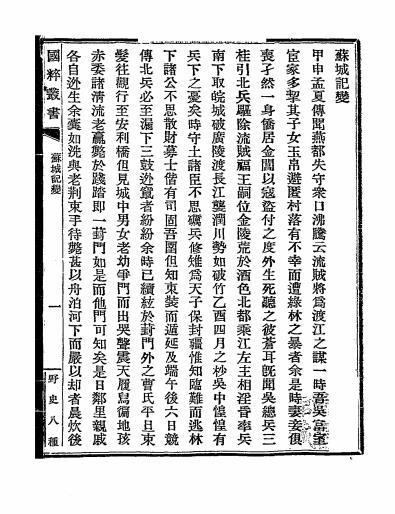 蘇城記變
甲申孟夏傳聞燕都失守衆口沸騰云流賊將爲渡江之謀一時吾吳富室
宦家多挈其子女玉帛避匿村落有不幸而遭綠林之暴者余是時妻妾俱
喪孑然一身僑居金閶以寇盜付之度外生死聽之彼蒼耳旣聞吳總兵三
桂引北兵驅除流賊福王嗣位金陵荒於酒色北都乘江左主相淫昏率兵
南下取皖城破廣陵渡長江襲潤川勢如破竹乙酉四月之杪吳中惶惶有
兵下之憂矣時守土諸臣不思礪兵修雉爲天子保封疆惟知臨難而逃林
下諸公不思散財募士偕有司固吾圉但知束裝而遁延及端午後六日競
傳北兵必至漏下三鼓逊竄者紛紛余時已續絃於葑門外之曹氏平旦束
髮往觀行至安利橋但見城中男女老幼爭門而出哭聲震天履舄徧地孩
赤委諸清流老羸斃於踐踏卽一葑門如是而他門可知矣是日鄰里親戚
各自逊生余囊如洗與老荆束手待斃甚以舟泊河下而嚴以却者晨炊後
國粹叢書
蘇城記變
一
野史八種